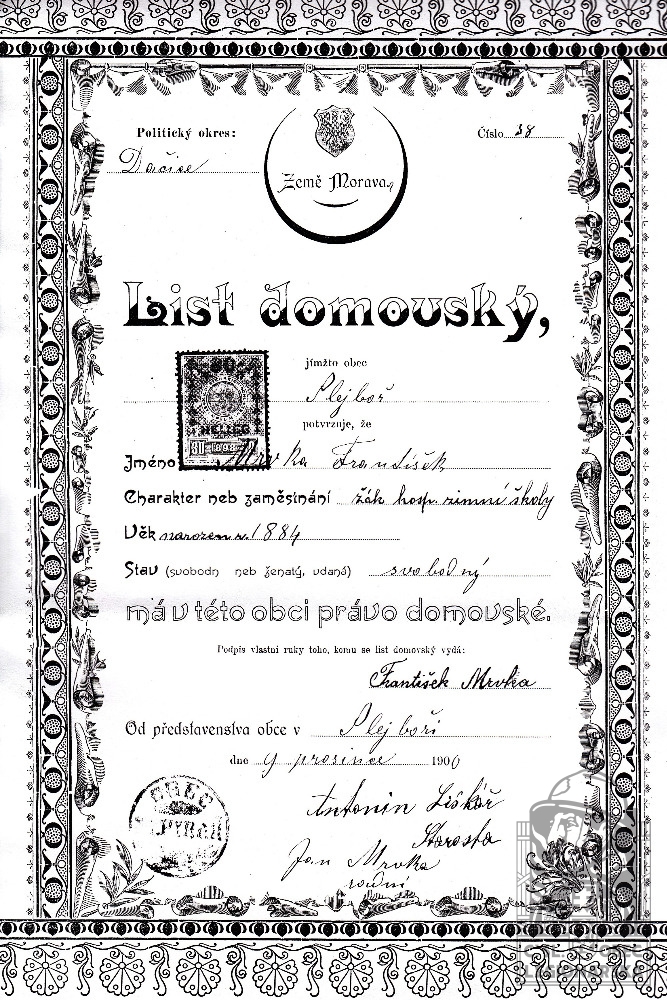 Politický okres:
Dačice
Číslo 38
Země Morava.
List domovský,
jímžto obec
Plejboř
potvrzuje, že
Jméno Mrvka František
Charakter neb zaměstnání žák hosp. zimní školy
Věk narozen r. 1884
Stav (svobodn neb ženatý, vdaná) svobodný
má v této obci právo domovské.
Podpis vlastní ruky toho, komu se list domovský vydá:
František Mrvka
Od představenstva obce v Plejboři
dne 9 prosince 1900
Antonín Liškář
Starosta
Jan Mrvka
radní
OBEC